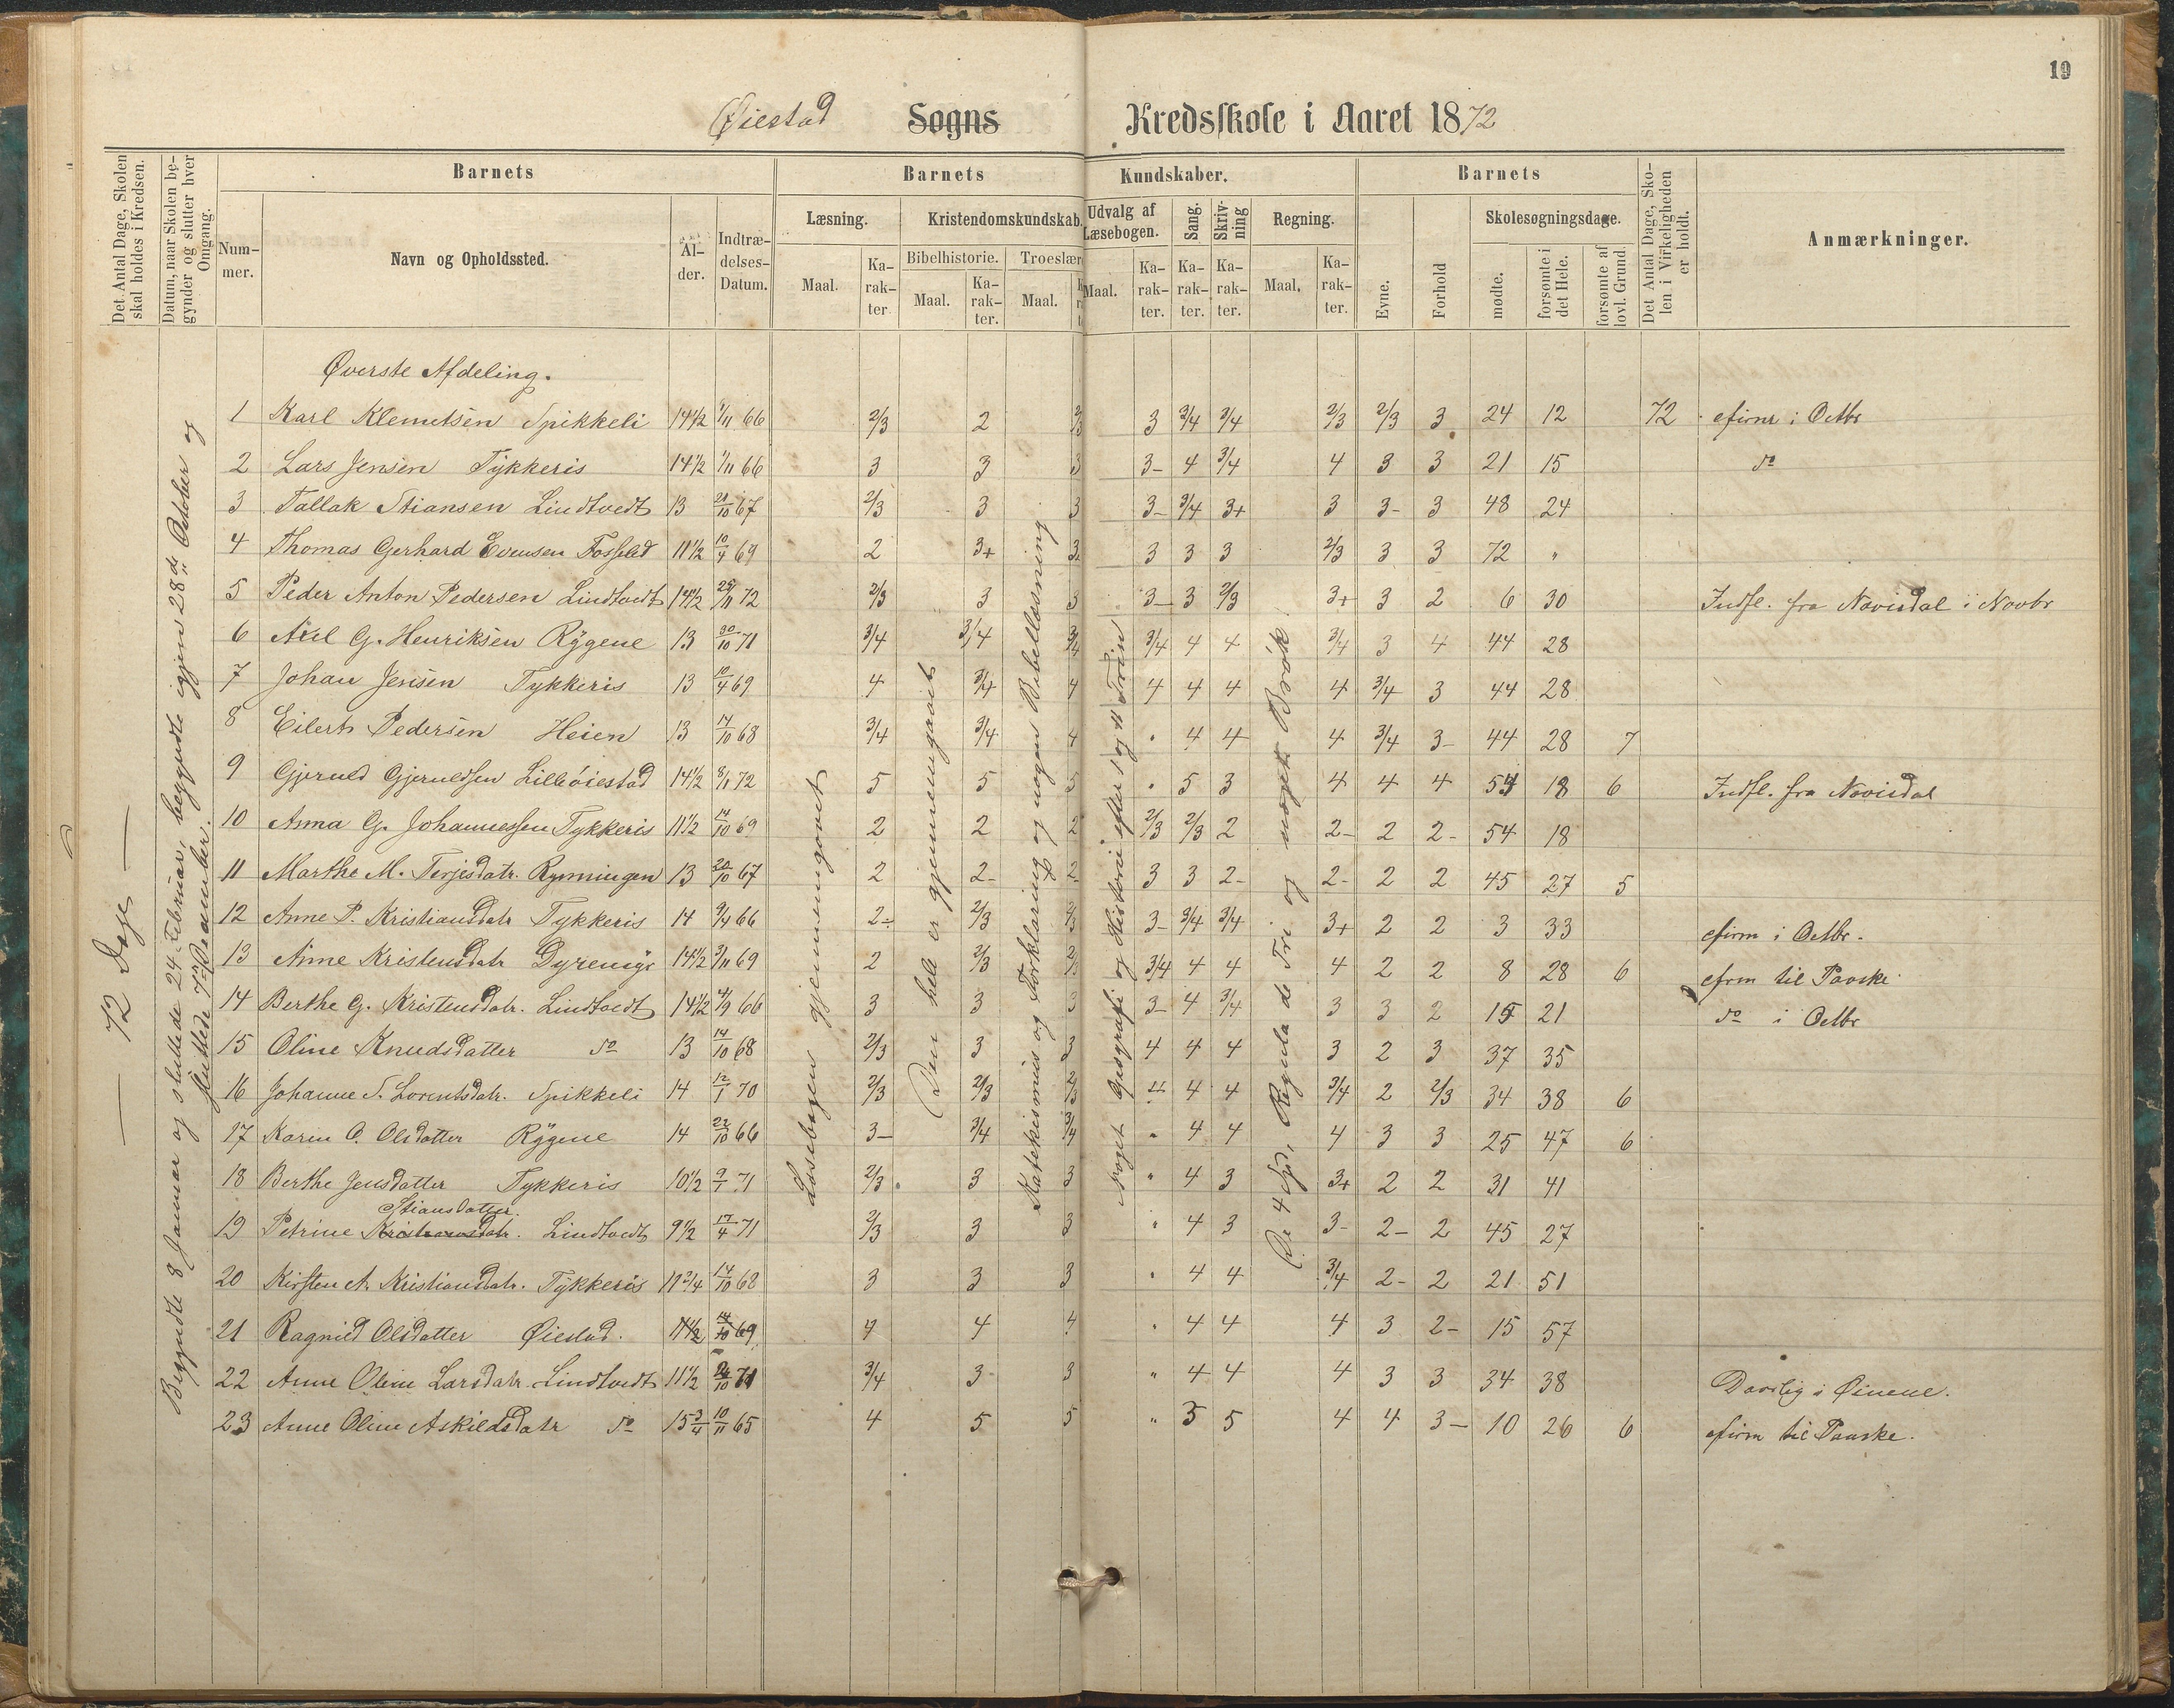 19
Øiestad Sogns Kredsskole i Aaret 1872
Det Antal Dage, Skolen skal holdes i Kredsen.
Datum, naar Skolen begynder og slutter hver Omgang.
Barnets
Barnets Kundskaber.
Barnets
Det Antal Dage, Skolen i Virkeligheden er holdt.
Anmærkninger.
Nummer.
Navn og Opholdssted.
Alder.
Indtrædelses-Datum.
Læsning.
Kristendomskundskab.
Udvalg af Læsebogen.
Sang.
Skrivning
Regning.
Evne.
Forhold
Skolesøgningsdage.
Bibelhistorie.
Troeslær
Maal.
Karakter
Maal.
Karakter.
Maal.
Maal.
Karakter.
Karakter.
Karakter.
Maal.
Karakter.
mødte.
forsømte i det Hele.
forsømte af lovl. Grund.
72 Dage
Begyndte 8 Januar og sluttede 24 Februar, begyndte igjen 28de October og
sluttede 7de December.
Læsebogen gjennemgaaet
Den hele er gjennemgaaet
Katekismus og Forklaring og nogen Bibellæsning
Noget Geografi og Historie efter 1 og 2 Trin
De 4 Sp., Regula de Tri og noget Brøk
Øverste Afdeling.
1 Karl Klemetsen Spikkeli 14 1/2 1/11 66 2/3 2 2/3 3 3/4 3/4 2/3 2/3 3 24 12 72 i Octbr
2 Lars Jensen Tykkeris 14 1/2 1/11 66 3 3 3 3- 4 3/4 4 3 3 21 15 do
3 Tallak Stiansen Lindtvedt 13 21/10 67 2/3 3 3 3- 3/4 3+ 3 3- 3 48 24
4 Thomas Gerhard Evensen 11 1/2 10/4 69 2 3+ 3+ 3 3 3 2/3 3 3 72 "
5 Peder Anton Pedersen Lindtvedt 14 1/2 25/11 72 2/3 3 3 3- 3 2/3 3+ 3 2 6 30 Indfl. fra Novisdal i Novbr
6 Axel G. Henriksen Rygene 13 30/10 71 3/4 3/4 3/4 3/4 4 4 3/4 3 4 44 28
7 Johan Jensen Tykkeris 13 10/4 69 4 3/4 4 4 4 4 4 3/4 3 44 28
8 Eilert Pedersen Heien 13 14/10 68 3/4 3/4 4 " 4 4 4 3/4 3- 44 28 7
9 Gjeruld Gjeruldsen Lilleøiestad 14 1/2 8/1 72 5 5 5 " 5 3 4 4 4 54 18 6 Indfl. fra Novisdal
10 Anna G. Johannessen Tykkeris 11 1/2 14/10 69 2 2 2 2/3 2/3 2 2- 2 2- 54 18
11 Marthe M. Terjesdatr. Rynningen 13 20/10 67 2 2- 2- 3 3 2- 2- 2 2 45 27 5
12 Anne P. Kristiansdatr Tykkeris 14 9/4 66 2- 2/3 2/3 3- 3/4 3/4 3+ 2 2 3 33 i Octbr.
13 Anne Kristensdatr Dyremyr 14 1/2 3/11 69 2 2/3 2/3 3/4 4 4 4 2 2 8 28 6 til Paaske
14 Berthe G. Kristensdatr. Lindtvedt 14 1/2 4/9 66 3 3 3 3- 4 3/4 3 3 2 15 21 do i Octbr
15 Oline Knudsdatter do 13 14/10 68 2/3 3 3 4 4 4 3 2 3 37 35
16 Johanne S. Lorentsdatr. Spikkeli 14 12/1 70 2/3 2/3 2/3 4 4 4 3/4 2 2/3 34 38 6
17 Karen O. Olsdatter Rygene 14 22/10 66 3- 3/4 3/4 " 4 4 4 3 3 25 47 6
18 Berthe Jensdatter Tykkeris 10 1/2 9/1 71 2/3 3 3 " 4 3 3+ 2 2 31 41
Stiansdatter.
19 Petrine Kristiansdatr. Lindtvedt 9 1/2 17/4 71 2/3 3 3 " 4 3 3- 2- 2 45 27
20 Kirsten A. Kristiansdatr. Tykkeris 11 3/4 14/10 68 3 3 3 " 4 4 3/4 2- 2 21 51
21 Ragnild Olsdatter Øiestad. 11 1/2 14/10 69 4 4 4 " 4 4 4 3 2- 15 57
22 Anne Oline Larsdatr. Lindtvedt 11 1/2 24/10 71 3/4 3 3 " 4 4 4 3 3 34 38 Daarlig i Øinene.
23 Anne Oline Askildsdatr do 15 3/4 10/11 65 4 5 5 " 5 5 4 4 3- 10 26 6 til Paaske.